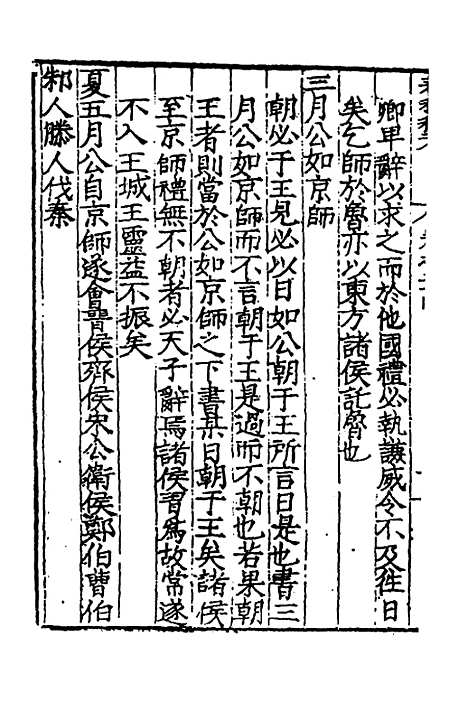 卿卑辭以求之而於他國禮必執謙威令不及徃日
矣乞師於魯亦以東方諸侯託魯也
三月公如京師
朝必于王見必以日如公朝于王所言日是也書三
月公如京師而不言朝于王是過而不朝也若果朝
王者則當於公如京師之下書某日朝于王矣諸侯
至京師禮無不朝者必天子辭焉諸侯習爲故常遂
不入王城王靈益不振矣
夏五月公自京師遂會晉侯齊侯宋公衛侯鄭伯曹伯
邾人滕人伐秦